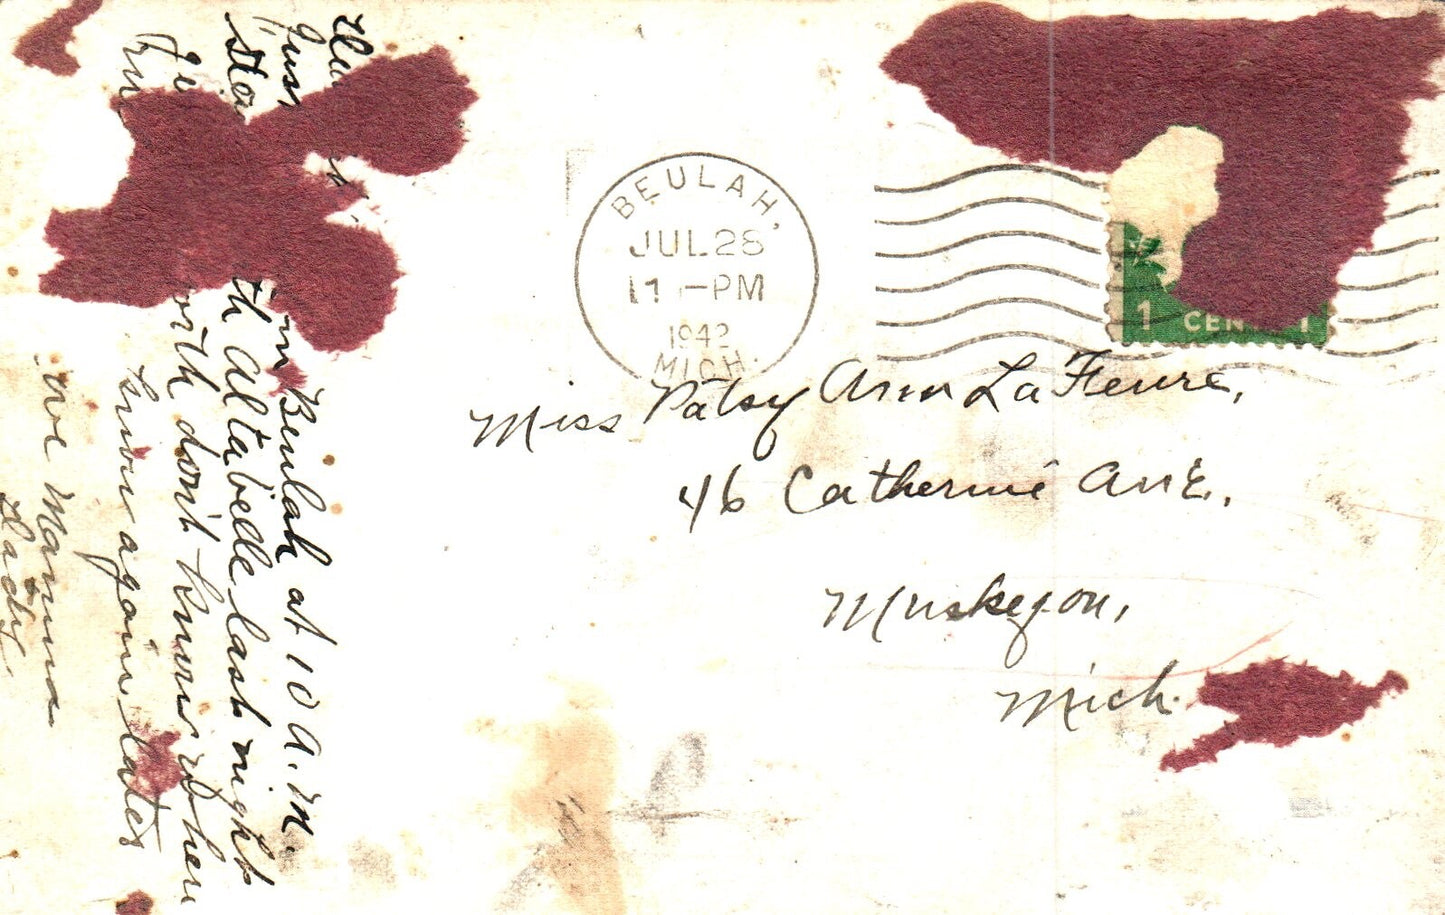 BEULAH,
JUL 28
11 - PM
1942
MICH.
1 CENT 1
Miss Patsy Ann LaFeure,
46 Catherine Ave.,
Muskegon,
Mich.
Jus in Beulah at 10 a.m.
Sta th Alta belle last night
orth don't know when
know again later
ove Mamma
Dady.